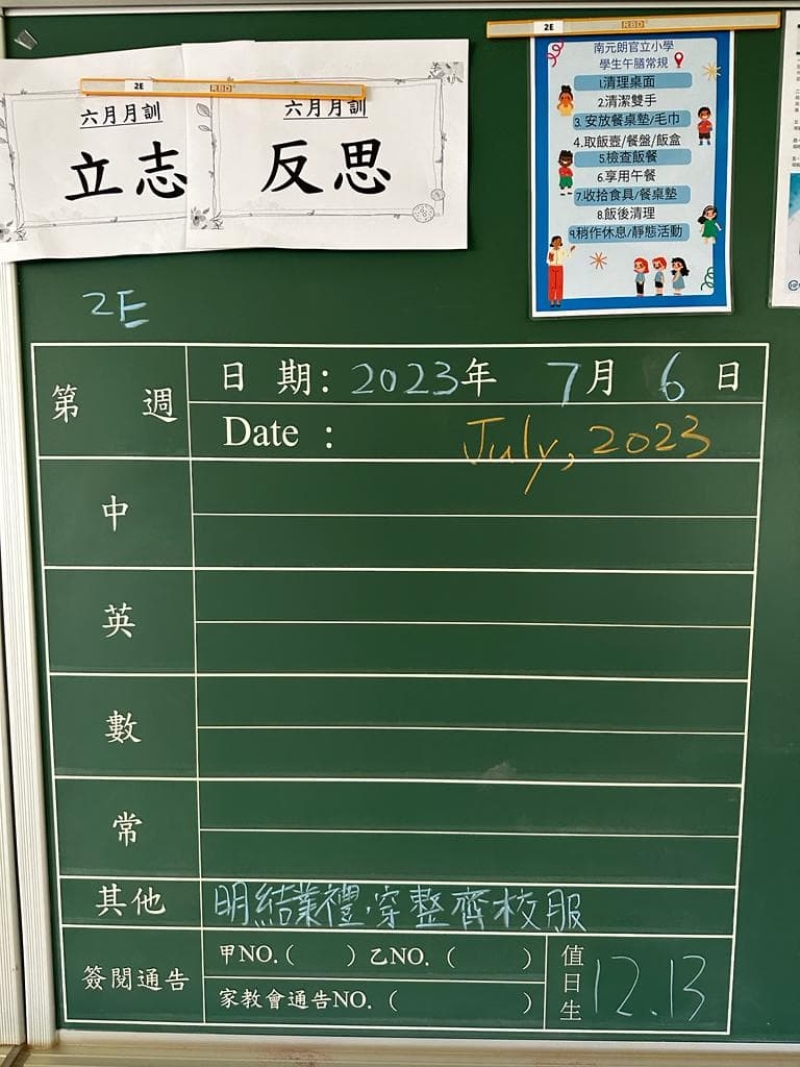 2E
RBD
六月月訓
立志
六月月訓
反思
2E
RBD
南元朗官立小學
學生午膳常規
1.清理桌面
2.清潔雙手
3.安放餐桌墊/毛巾
4.取飯壺/餐盤/飯盒
5.檢查飯餐
6.享用午餐
7.收拾食具/餐桌墊
8.飯後清理
9.稍作休息/靜態活動
2E
第 週
日 期：2023年 7月 6日
Date : July, 2023
中
英
數
常
其他 明結業禮，穿整齊校服
簽閱通告
甲NO.( ) 乙NO.( )
家教會通告NO.( )
值日生 12.13